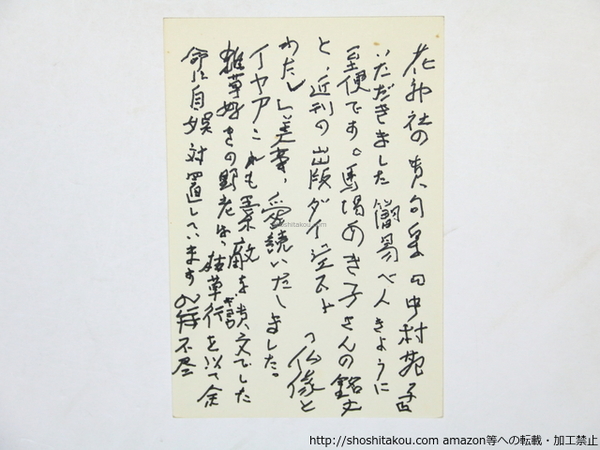 花神社の貴句集曰中村苑子
いただきました簡易べんきように
至便です。馬場あき子さんの銘文
と、近刊の出版ダイジェスト
「仏像と
わたし」美事、愛読いたしました。
イヤアこれも素敵な貴文でした
雑草好きの野老は、抜草行を以て余
命に自娯対置しています 不尽
shoshitakou.com
http://shoshitakou.com amazon等への転載・加工禁止